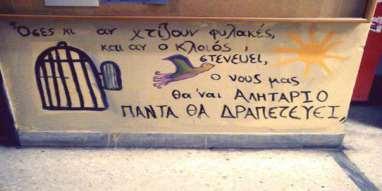 Όσες κι αν χτίζουν φυλακές,
και αν ο κλοιός,
στενεύει,
ο νους μας
θα 'ναι ΑΛΗΤΑΡΙΟ
ΠΑΝΤΑ ΘΑ ΔΡΑΠΕΤΕΥΕΙ,,